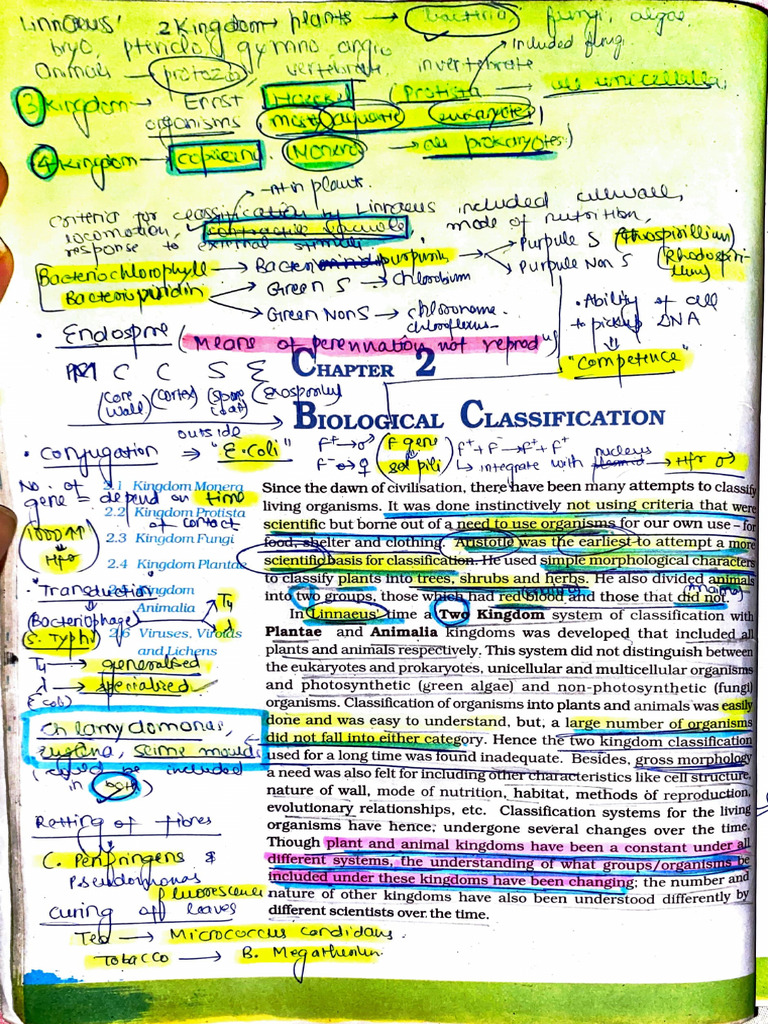 Linnaeus' 2 Kingdom → plants → bacteria, fungi, algae
bryo, pterido, gymno angio
Animals → protozoa, vertebrate, invertebrate
Included fungi
③ Kingdom → Ernst Haeckel (Protista → all unicellular
organisms (most aquatic eukaryotes)
④ Kingdom → Copeland. (Monera → all prokaryotes)
→ Not in plants.
Criteria for classification by Linnaeus included cellwall,
locomotion, contractile vacuole, mode of nutrition,
response to external stimuli
Bacteriochlorophyll → Bacterio purpurin → Purpule S (Thiospirillium)
Bacterioviridin → Green S → Chlorobium
→ Purpule Non S (Rhodospirillium)
→ Green Non S → chloronema
chloroflexus
• Ability of cell
to pickup DNA
⇓
"Competence"
• Endospore (Means of perennation not reprod)
C C S E
(Core wall) (Cortex) (Spore coat) (Exosporium)
outside
CHAPTER 2
BIOLOGICAL CLASSIFICATION
• Conjugation ⇒ "E.Coli" F⁺ → ♂ (F gene F⁺ + F⁻ → F⁺ + F⁺
F⁻ → ♀ sex pili) ↳ integrate with nucleus → Hfr ♂
No. of
gene = depend on time
of contact
1000 ↑↑
⇓
Hfr
2.1 Kingdom Monera
2.2 Kingdom Protista
2.3 Kingdom Fungi
2.4 Kingdom Plantae
Kingdom
Animalia
2.6 Viruses, Viroids
and Lichens
"Transduction"
(Bacteriophage) → T4
λ
S. Typhi
T4 → generalised
λ → specialised
(E coli)
Chlamydomonas,
euglena, slime moulds
(could be included
in both)
Retting of fibres
C. Perifringens &
Pseudomonas
fluorescence
Curing of leaves
Tea → Micrococcus candidans.
Tobacco → B. Megatherium.
Since the dawn of civilisation, there have been many attempts to classify
living organisms. It was done instinctively not using criteria that were
scientific but borne out of a need to use organisms for our own use – for
food, shelter and clothing. Aristotle was the earliest to attempt a more
scientific basis for classification. He used simple morphological characters
to classify plants into trees, shrubs and herbs. He also divided animals
into two groups, those which had red blood and those that did not.
In Linnaeus' time a Two Kingdom system of classification with
Plantae and Animalia kingdoms was developed that included all
plants and animals respectively. This system did not distinguish between
the eukaryotes and prokaryotes, unicellular and multicellular organisms
and photosynthetic (green algae) and non-photosynthetic (fungi)
organisms. Classification of organisms into plants and animals was easily
done and was easy to understand, but, a large number of organisms
did not fall into either category. Hence the two kingdom classification
used for a long time was found inadequate. Besides, gross morphology
a need was also felt for including other characteristics like cell structure,
nature of wall, mode of nutrition, habitat, methods of reproduction,
evolutionary relationships, etc. Classification systems for the living
organisms have hence, undergone several changes over the time.
Though plant and animal kingdoms have been a constant under all
different systems, the understanding of what groups/organisms be
included under these kingdoms have been changing; the number and
nature of other kingdoms have also been understood differently by
different scientists over the time.